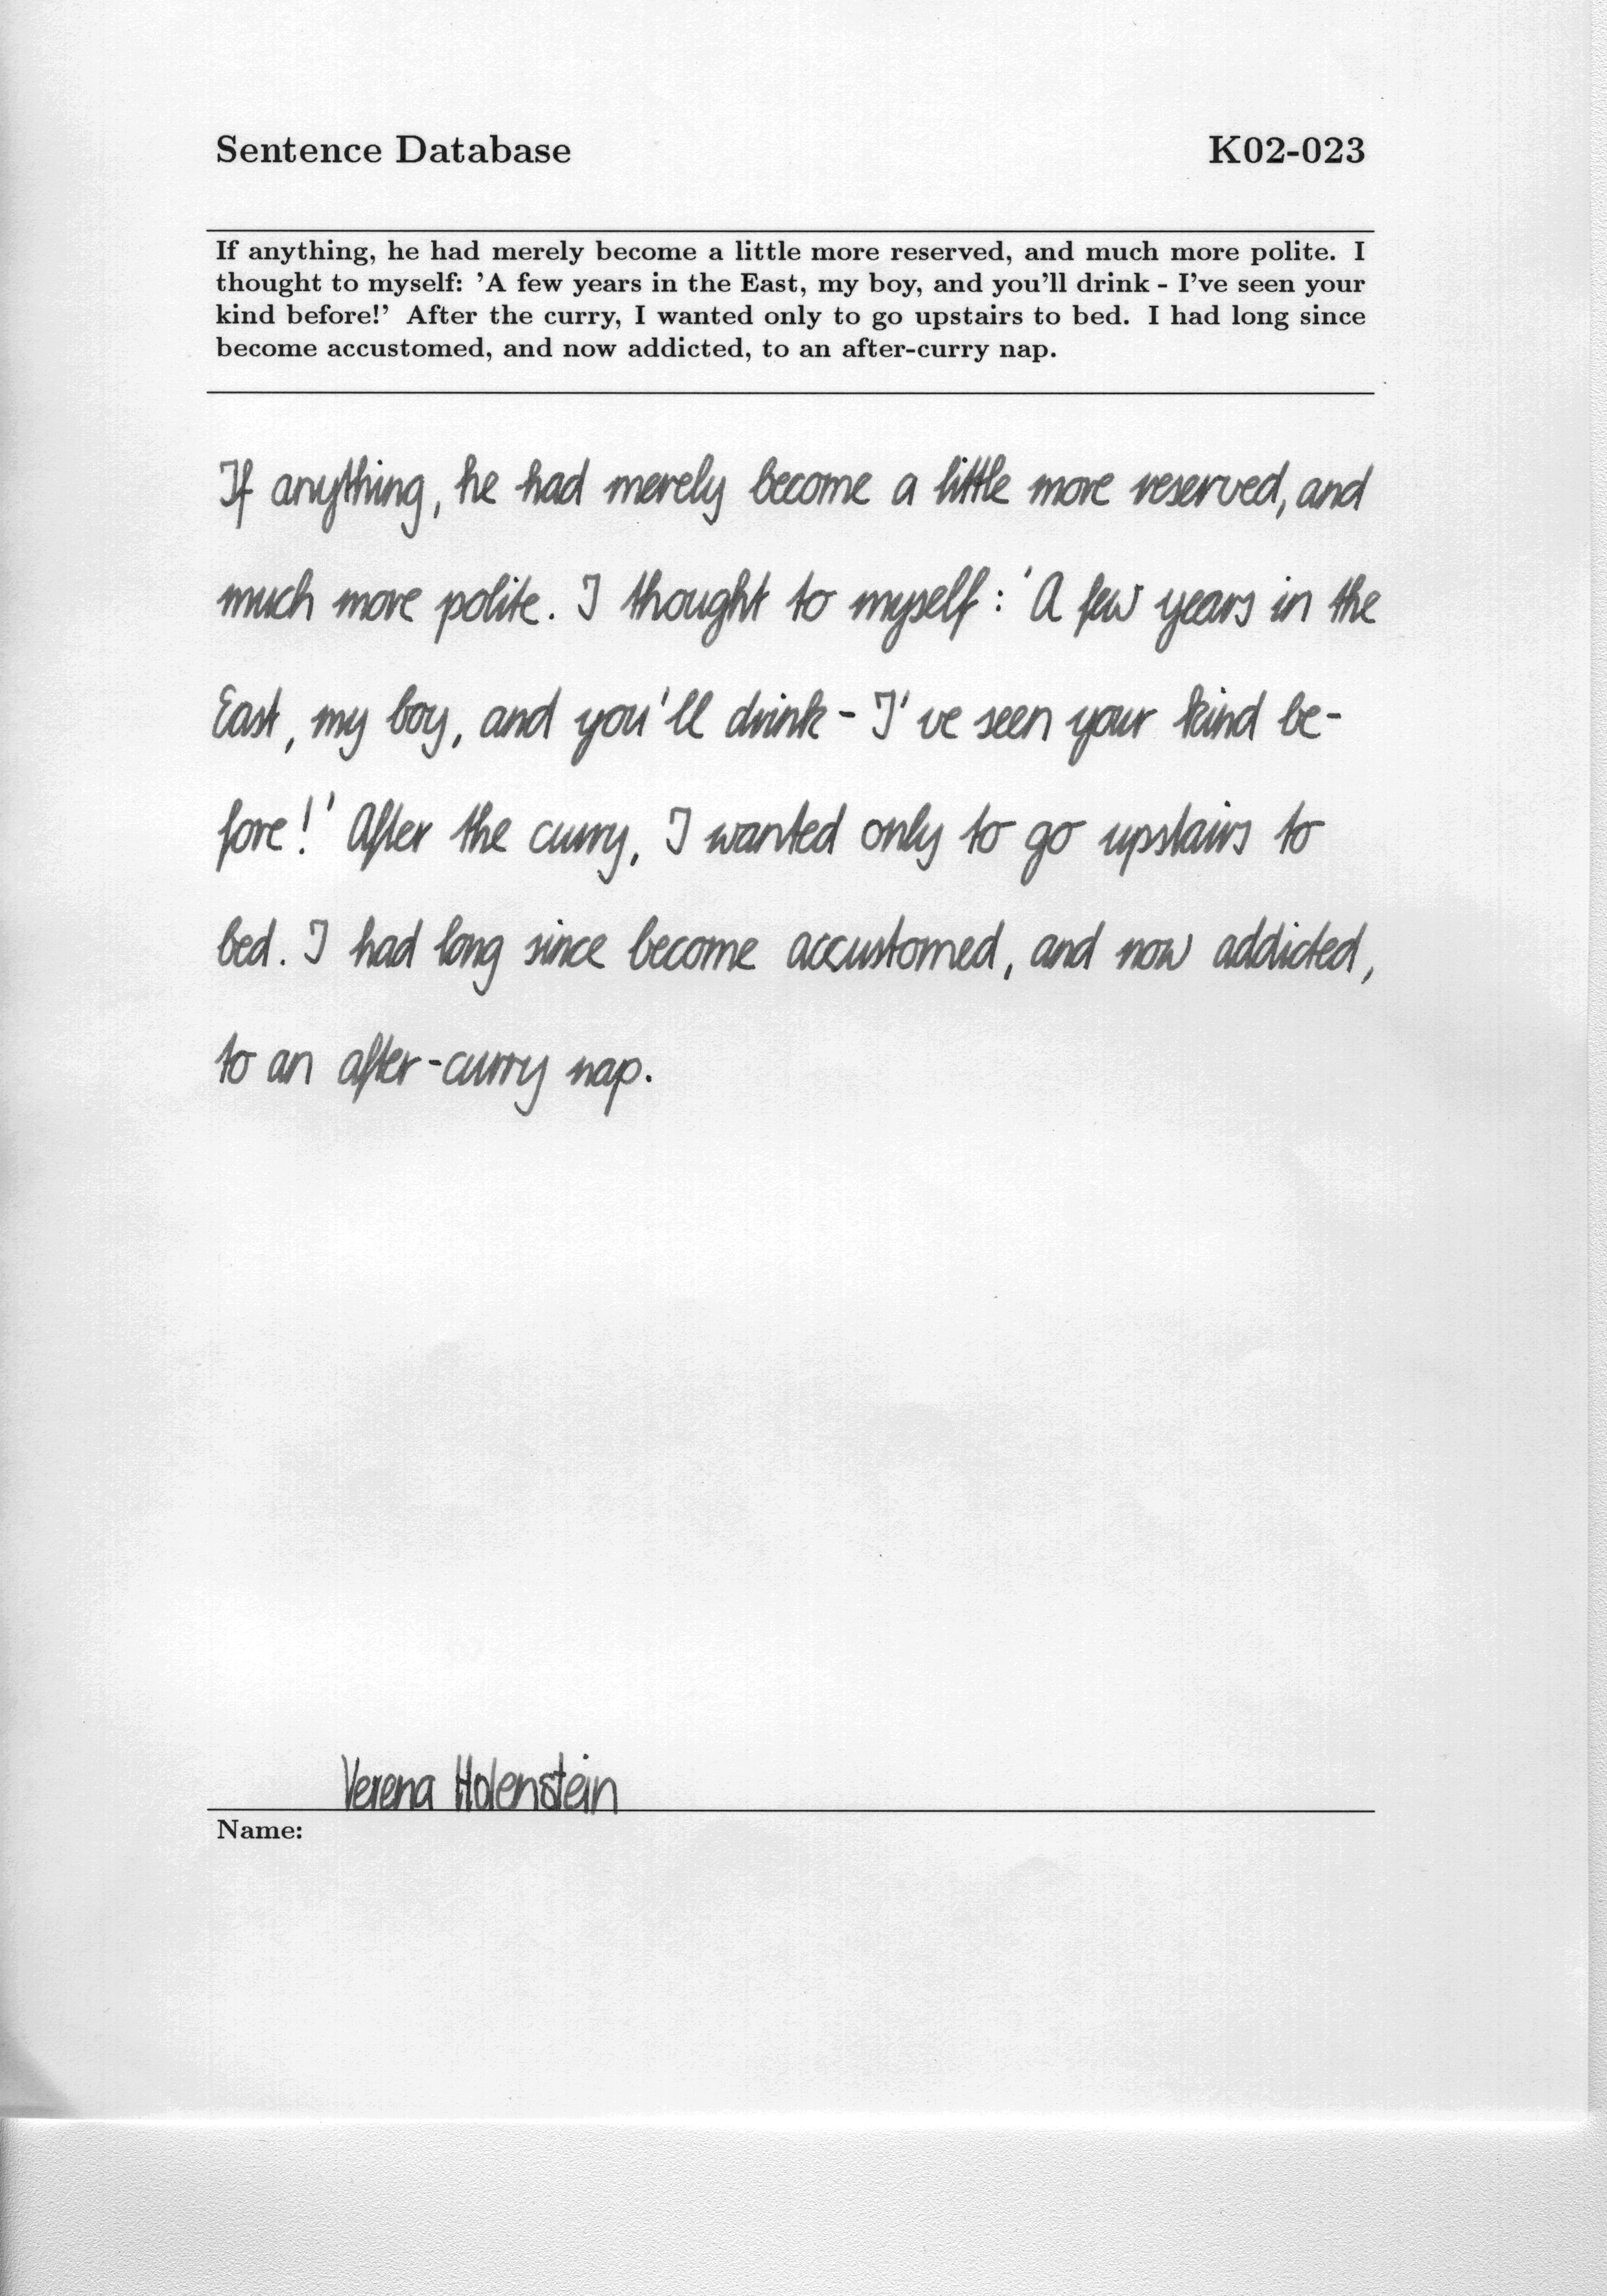 Sentence Database K02-023
If anything, he had merely become a little more reserved, and much more polite. I
thought to myself: 'A few years in the East, my boy, and you'll drink - I've seen your
kind before!' After the curry, I wanted only to go upstairs to bed. I had long since
become accustomed, and now addicted, to an after-curry nap.
If anything, he had merely become a little more reserved, and
much more polite. I thought to myself: 'A few years in the
East, my boy, and you'll drink - I've seen your kind be-
fore!' After the curry, I wanted only to go upstairs to
bed. I had long since become accustomed, and now addicted,
to an after-curry nap.
Verena Holenstein
Name: